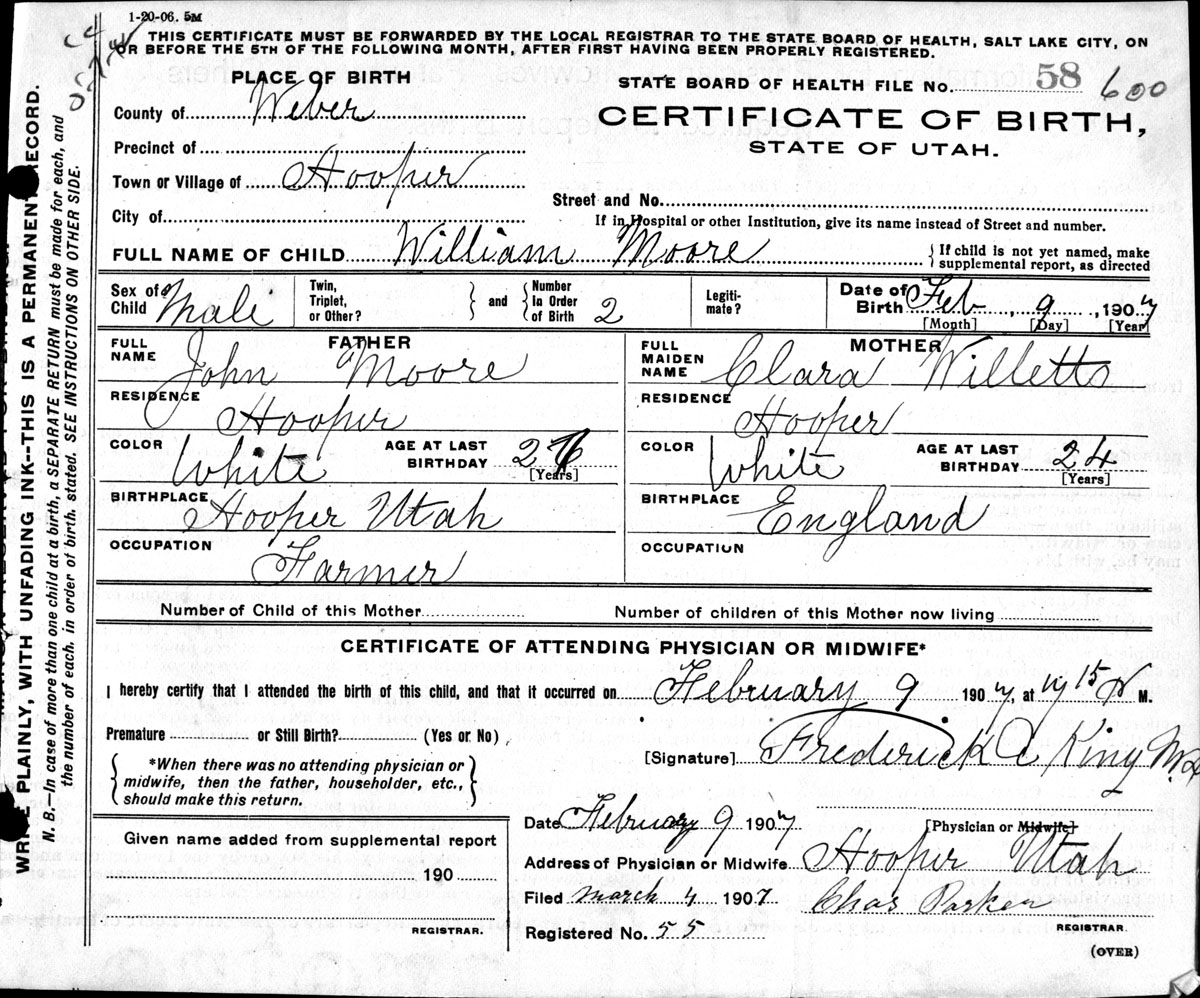 1-20-06. 5M
THIS CERTIFICATE MUST BE FORWARDED BY THE LOCAL REGISTRAR TO THE STATE BOARD OF HEALTH, SALT LAKE CITY, ON
OR BEFORE THE 5TH OF THE FOLLOWING MONTH, AFTER FIRST HAVING BEEN PROPERLY REGISTERED.
PLACE OF BIRTH
STATE BOARD OF HEALTH FILE NO. 58 600
County of Weber
CERTIFICATE OF BIRTH,
STATE OF UTAH.
Precinct of
Town or Village of Hooper
Street and No.
City of
If in Hospital or other Institution, give its name instead of Street and number.
FULL NAME OF CHILD William Moore {If child is not yet named, make supplemental report, as directed
Sex of Child Male
Twin, Triplet, or Other? } and { Number in Order of Birth 2
Legitimate?
Date of Birth Feb, 9, 1907
[Month] [Day] [Year]
FATHER
FULL NAME John Moore
RESIDENCE Hooper
COLOR White AGE AT LAST BIRTHDAY 26
[Years]
BIRTHPLACE Hooper Utah
OCCUPATION Farmer
MOTHER
FULL MAIDEN NAME Clara Willetts
RESIDENCE Hooper
COLOR White AGE AT LAST BIRTHDAY 24
[Years]
BIRTHPLACE England
OCCUPATION
Number of Child of this Mother
Number of children of this Mother now living
CERTIFICATE OF ATTENDING PHYSICIAN OR MIDWIFE*
I hereby certify that I attended the birth of this child, and that it occurred on February 9 1907 at 15 M.
Premature or Still Birth? (Yes or No)
[Signature] Frederick C King MD
{ *When there was no attending physician or
midwife, then the father, householder, etc.,
should make this return. }
Date February 9 1907 [Physician or Midwife]
Given name added from supplemental report
190
REGISTRAR.
Address of Physician or Midwife Hooper Utah
Filed March 4 1907 Chas Parker
REGISTRAR.
Registered No. 55
(OVER)
WRITE PLAINLY, WITH UNFADING INK--THIS IS A PERMANENT RECORD.
N. B.—In case of more than one child at a birth, a SEPARATE RETURN must be made for each, and
the number of each, in order of birth, stated. SEE INSTRUCTIONS ON OTHER SIDE.